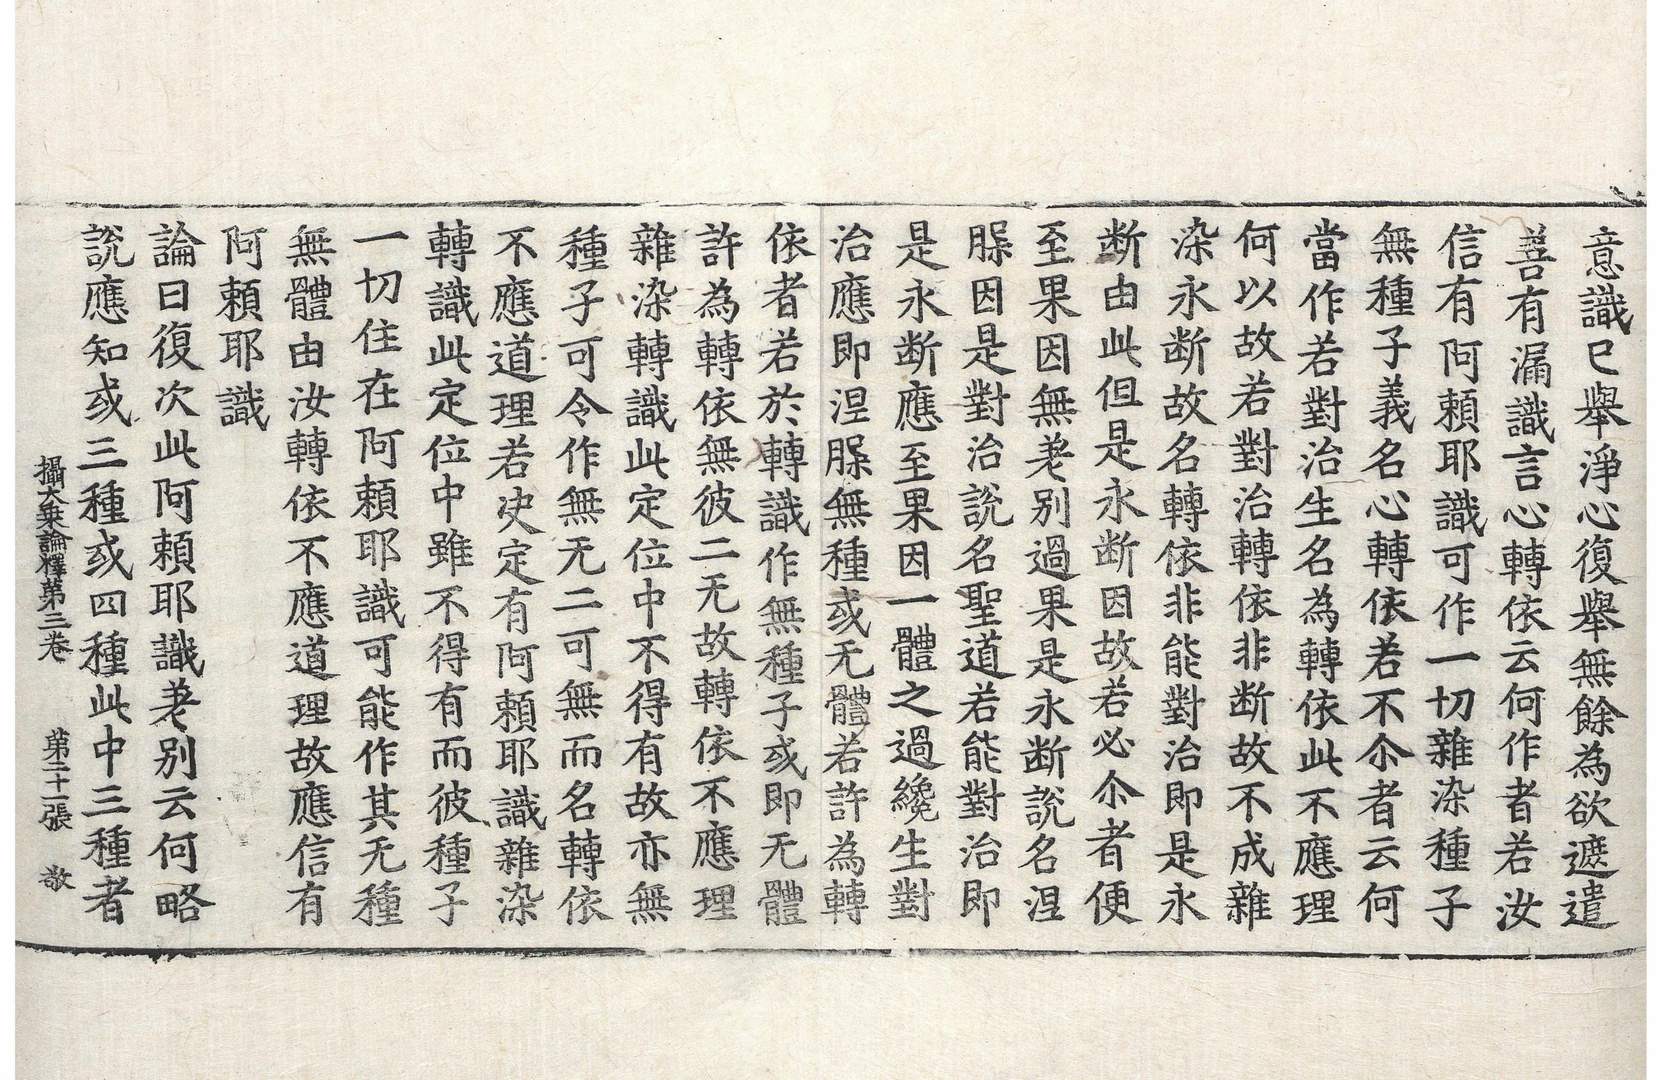 意識已舉淨心復舉無餘為欲遮遣
善有漏識言心轉依云何作者若汝
信有阿賴耶識可作一切雜染種子
無種子義名心轉依若不尒者云何
當作若對治生名為轉依此不應理
何以故若對治轉依非斷故不成雜
染永斷故名轉依非能對治即是永
斷由此但是永斷因故若必尒者便
至果因無差別過果是永斷說名涅
槃因是對治說名聖道若能對治即
是永斷應至果因一體之過纔生對
治應即涅槃無種或无體若許為轉
依者若於轉識作無種子或即无體
許為轉依無彼二无故轉依不應理
雜染轉識此定位中不得有故亦無
種子可令作無无二可無而名轉依
不應道理若決定有阿賴耶識雜染
轉識此定位中雖不得有而彼種子
一切住在阿賴耶識可能作其无種
無體由汝轉依不應道理故應信有
阿賴耶識
論曰復次此阿賴耶識差別云何略
說應知或三種或四種此中三種者
攝大乘論釋第三卷 第二十一張 敬